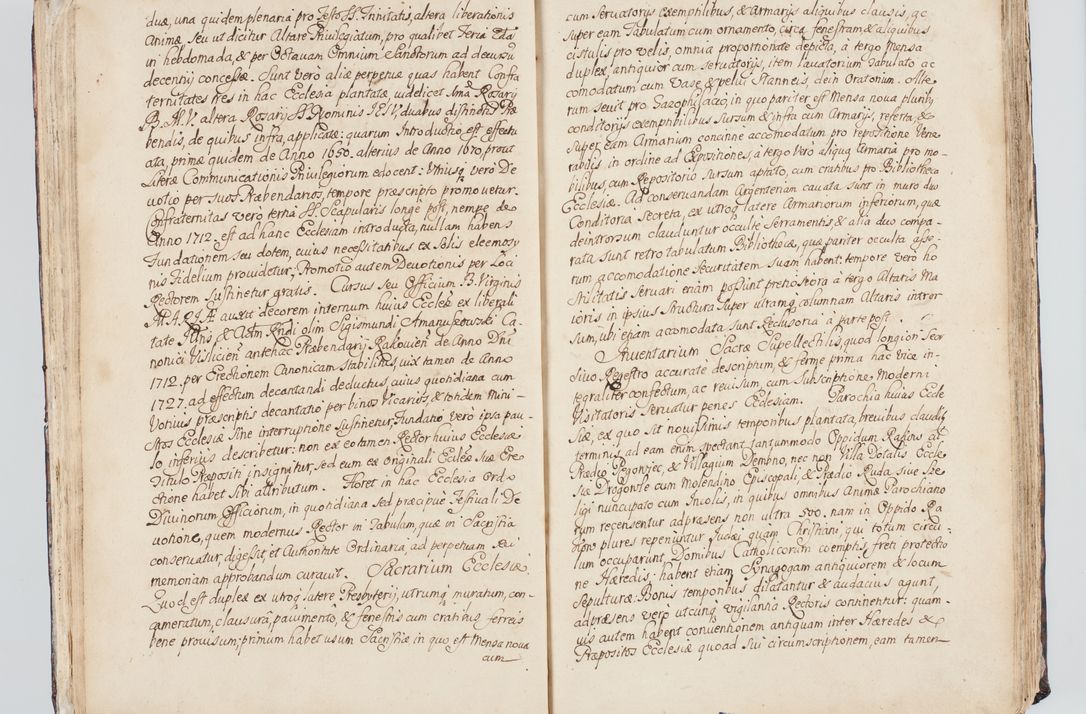 duæ, una quidem plenaria pro Festo SS. Trinitatis, altera liberationis
Animæ seu ut dicitur Altare Privilegiatum, pro qualibet Feria 2da
in hebdomada, & per Octavam Omnium Sanctorum ad decursū
decennij concessæ. Sunt vero aliæ perpetuæ quas habent Confra
ternitates tres in hac Ecclesia plantatæ, videlicet SSmæ Rosarij
B. M. V. altera Rosarij SS. Nominis IESV, duabus distinctis Præ
bendis, de quibus infra, applicatæ: quarum Introductio est effectu
ata, primæ quidem de Anno 1650. alterius de Anno 1670, prout
Literæ Communicationis Privilegiorum edocent: Vtriusq vero De
votio per suos Præbendarios, tempore præscripto promovetur.
Confraternitas vero tertia SS. Scapularis longe post, nempe de
Anno 1712. est ad hanc Ecclesiam introducta, nullam habens
Fundationem seu dotem, cuius necessitatibus ex solis eleemosy
nis Fidelium providetur; Promotio autem Devotionis per Loci
Rectorem sustinetur gratis. Cursus seu Officium B. Virginis
MARIÆ auxit decorem internum huius Ecclesiæ ex liberali
tate Illris & Adm. Rndi olim Sigismundi Ca
nonici Vislicien antehac Præbendarij Rakovien de Anno Dni
1712. per Erectionem Canonicam stabilitus, vix tamen de Anno
1727. ad effectum decantandi deductus, cuius quotidiana cum
Votivis præscriptis decantatio per binos Vicarios, & totidem Mini-
stros Ecclesiæ sine interruptione sustinetur, Fundatio vero ipsa pau-
lo inferius describetur: non ex eo tamen Rector huius Ecclesiæ
Titulo Præpositi insignitur, sed eum ex originali Ecclesiæ suæ Ere
ctione habet sibi attributum. Floret in hac Ecclesia Ordo
Divinorum Officiorum, in quotidiana sed præcipue Festivali De
votione, quem modernus Rector in Tabulam, quæ in Sacristia
conservatur, digessit et Authoritate Ordinaria, ad perpetuam rei
memoriam approbandum curavit. Sacrarium Ecclesiæ
Quod est duplex ex utroq latere Presbyterij, utrumq muratum, con-
cameratum, clausurâ, pavimento, & fenestris cum cratibus ferreis
bene provisum; primum habet usum Sacristiæ in quo est Mensa nova
cum
cum servatorijs exemptilibus, & Armarijs aliquibus clausis, ac
super eam Tabulatum cum ornamento, circa fenestram & aliquibus
cistulis pro velis, omnia proportionate depicta, à tergo Mensa
duplex, antiquior cum servatorijs, item lavatorium Tabulato ac
comodatum cum Vase & pelvi stanneis, dein Oratorium. Alte-
rum servit pro Gazophilacio, in quo pariter est Mensa nova pluriby
conditorijs exemptibilibus sursum & infra cum Armarijs, referta, &
super eam Armarium concinne accomodatum pro repositione Vene
rabilis in ordine ad Expositiones, à tergo vero aliqua Armaria pro mo-
bilibus, cum Repositorio sursum aptato, cum cratibus pro Bibliotheca
Ecclesiæ. Ad conservandam Argenteriam cavata sunt in muro duo
Conditoria secreta, ex utroq latere Armariorum inferiorum, quæ
deintrorsum clauduntur occulte serramentis, & alia duo compa-
rata sunt retro tabulatum Bibliothecæ, quæ pariter occulta asse-
rum accomodatione securitatem suam habent; tempore vero ho
stilitatis servari etiam possint pretiosiora à tergo Altaris Ma
ioris in ipsius structura super utramq columnam Altaris intror
sum, ubi etiam accomodata sunt Reclusoria à parte post.
Inventarium Sacræ Supellectilis, quod longiori seor
sivo Regestro accurate descriptum & ferme prima hac vice in-
tegraliter confectum, ac revisum, cum Subscriptione Moderni
Visitatoris servatur penes Ecclesiam. Parochia huius Eccle
siæ, ex quo sit novissimis temporibus plantata, brevibus claudit
terminis, ad eam enim spectant tantummodo Oppidum Rakow, at
Prædio Pągonjec, & Villagium Dembno, nec non Villa Dotalis Eccle
siæ Drogowle cum Molendino Episcopali, & Prædio Ruda sive Sie
ligi nuncupato cum Incolis, in quibus omnibus Animæ Parochiano
rum recensentur ad præsens non ultra 500. nam in Oppido Ra
plures reperiuntur Iudæi quam Christiani, qui totum circu
lum occuparunt Domibus Catholicorum coemptis, freti protectio
ne Hæredis: habent etiam Synagogam antiquiorem & locum
sepulturæ: Bonis temporibus dilatantur & audacius agunt,
ad præsens vero utcunq vigilantia Rectoris continentur: quam-
vis autem habent conventionem antiquam inter Hæredes &
Præpositos Ecclesiæ quoad sui circumscriptionem, eam tamen